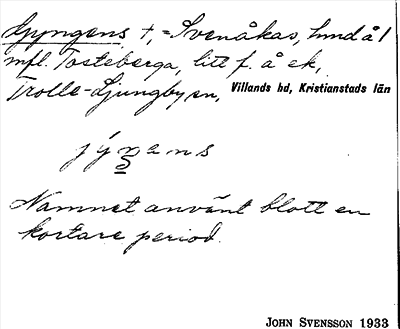 Gyngens †, = Svenåkas, hmd å 1
mfl. Tosteberga, litt f. å ek,
Trolle-Ljungby sn, Villands hd, Kristianstads län
Namnet använt blott en
kortare period.
JOHN SVENSSON 1933